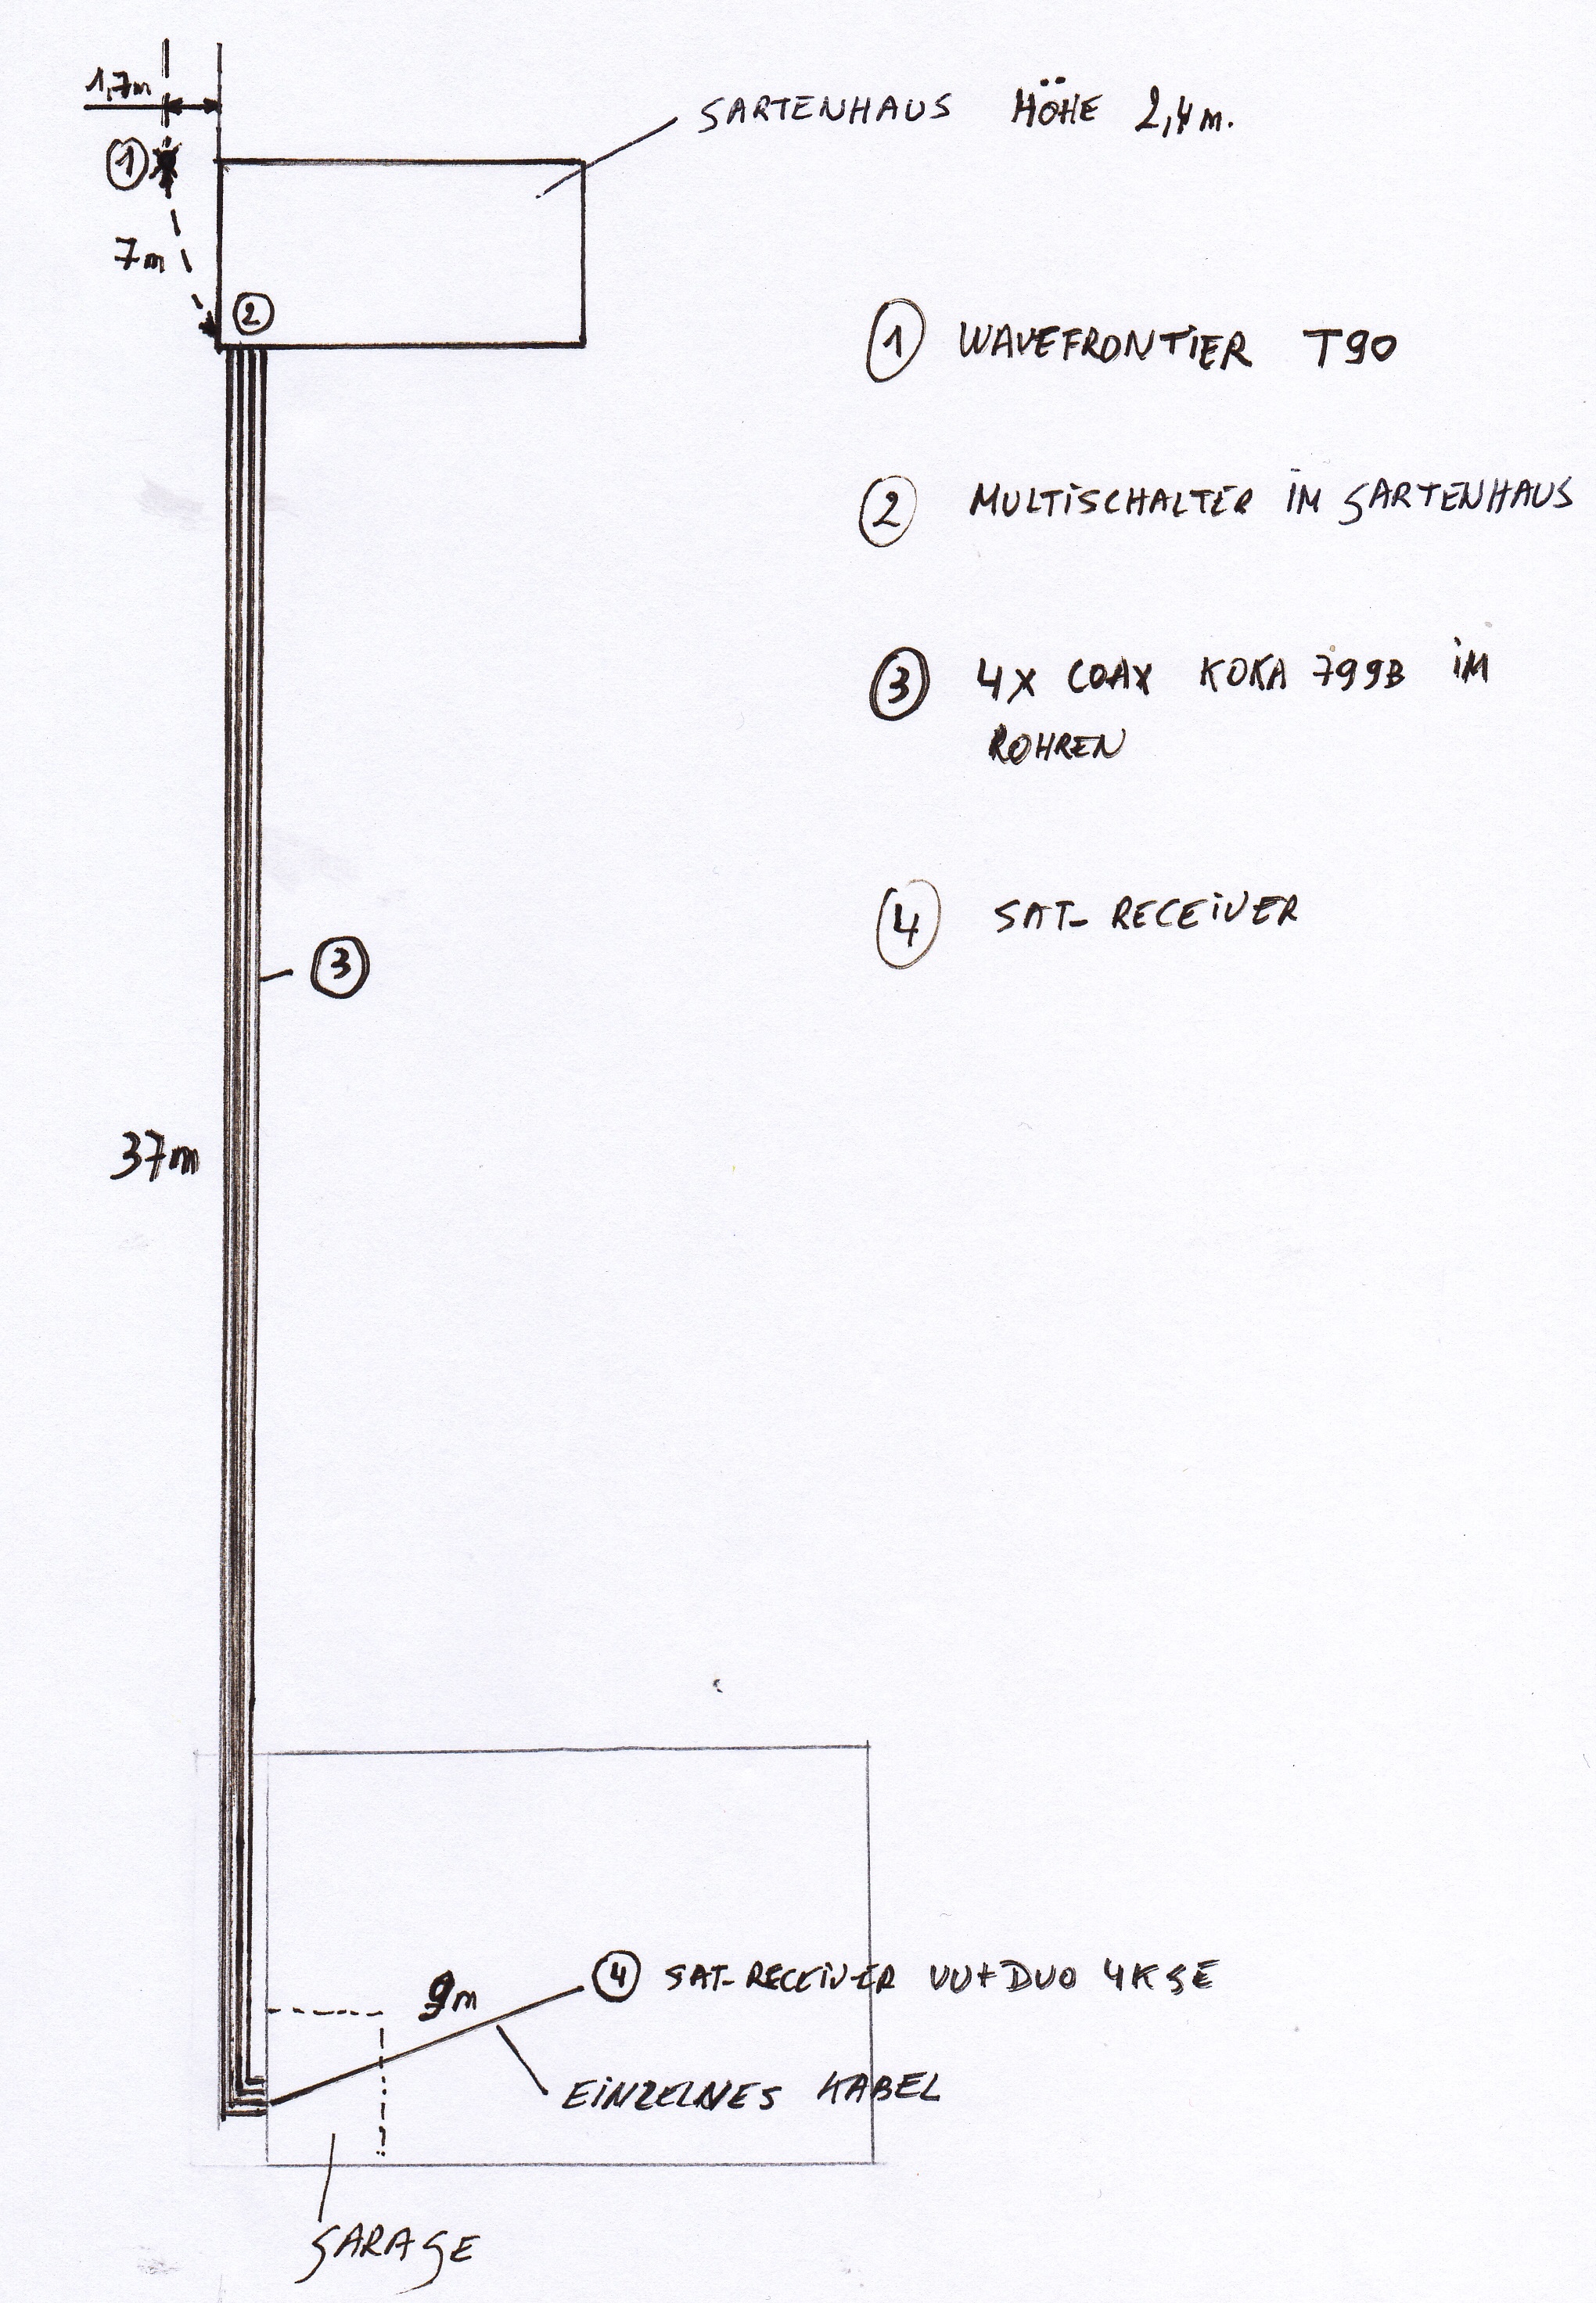 1,7m
GARTENHAUS HÖHE 2,4m.
1
7m
2
1 WAVEFRONTIER T90
2 MULTISCHALTER IM GARTENHAUS
3 4X COAX KOKA 799B IM
ROHREN
4 SAT-RECEIVER
3
37m
9m
4 SAT-RECEIVER VU+DUO 4K SE
EINZELNES KABEL
GARAGE